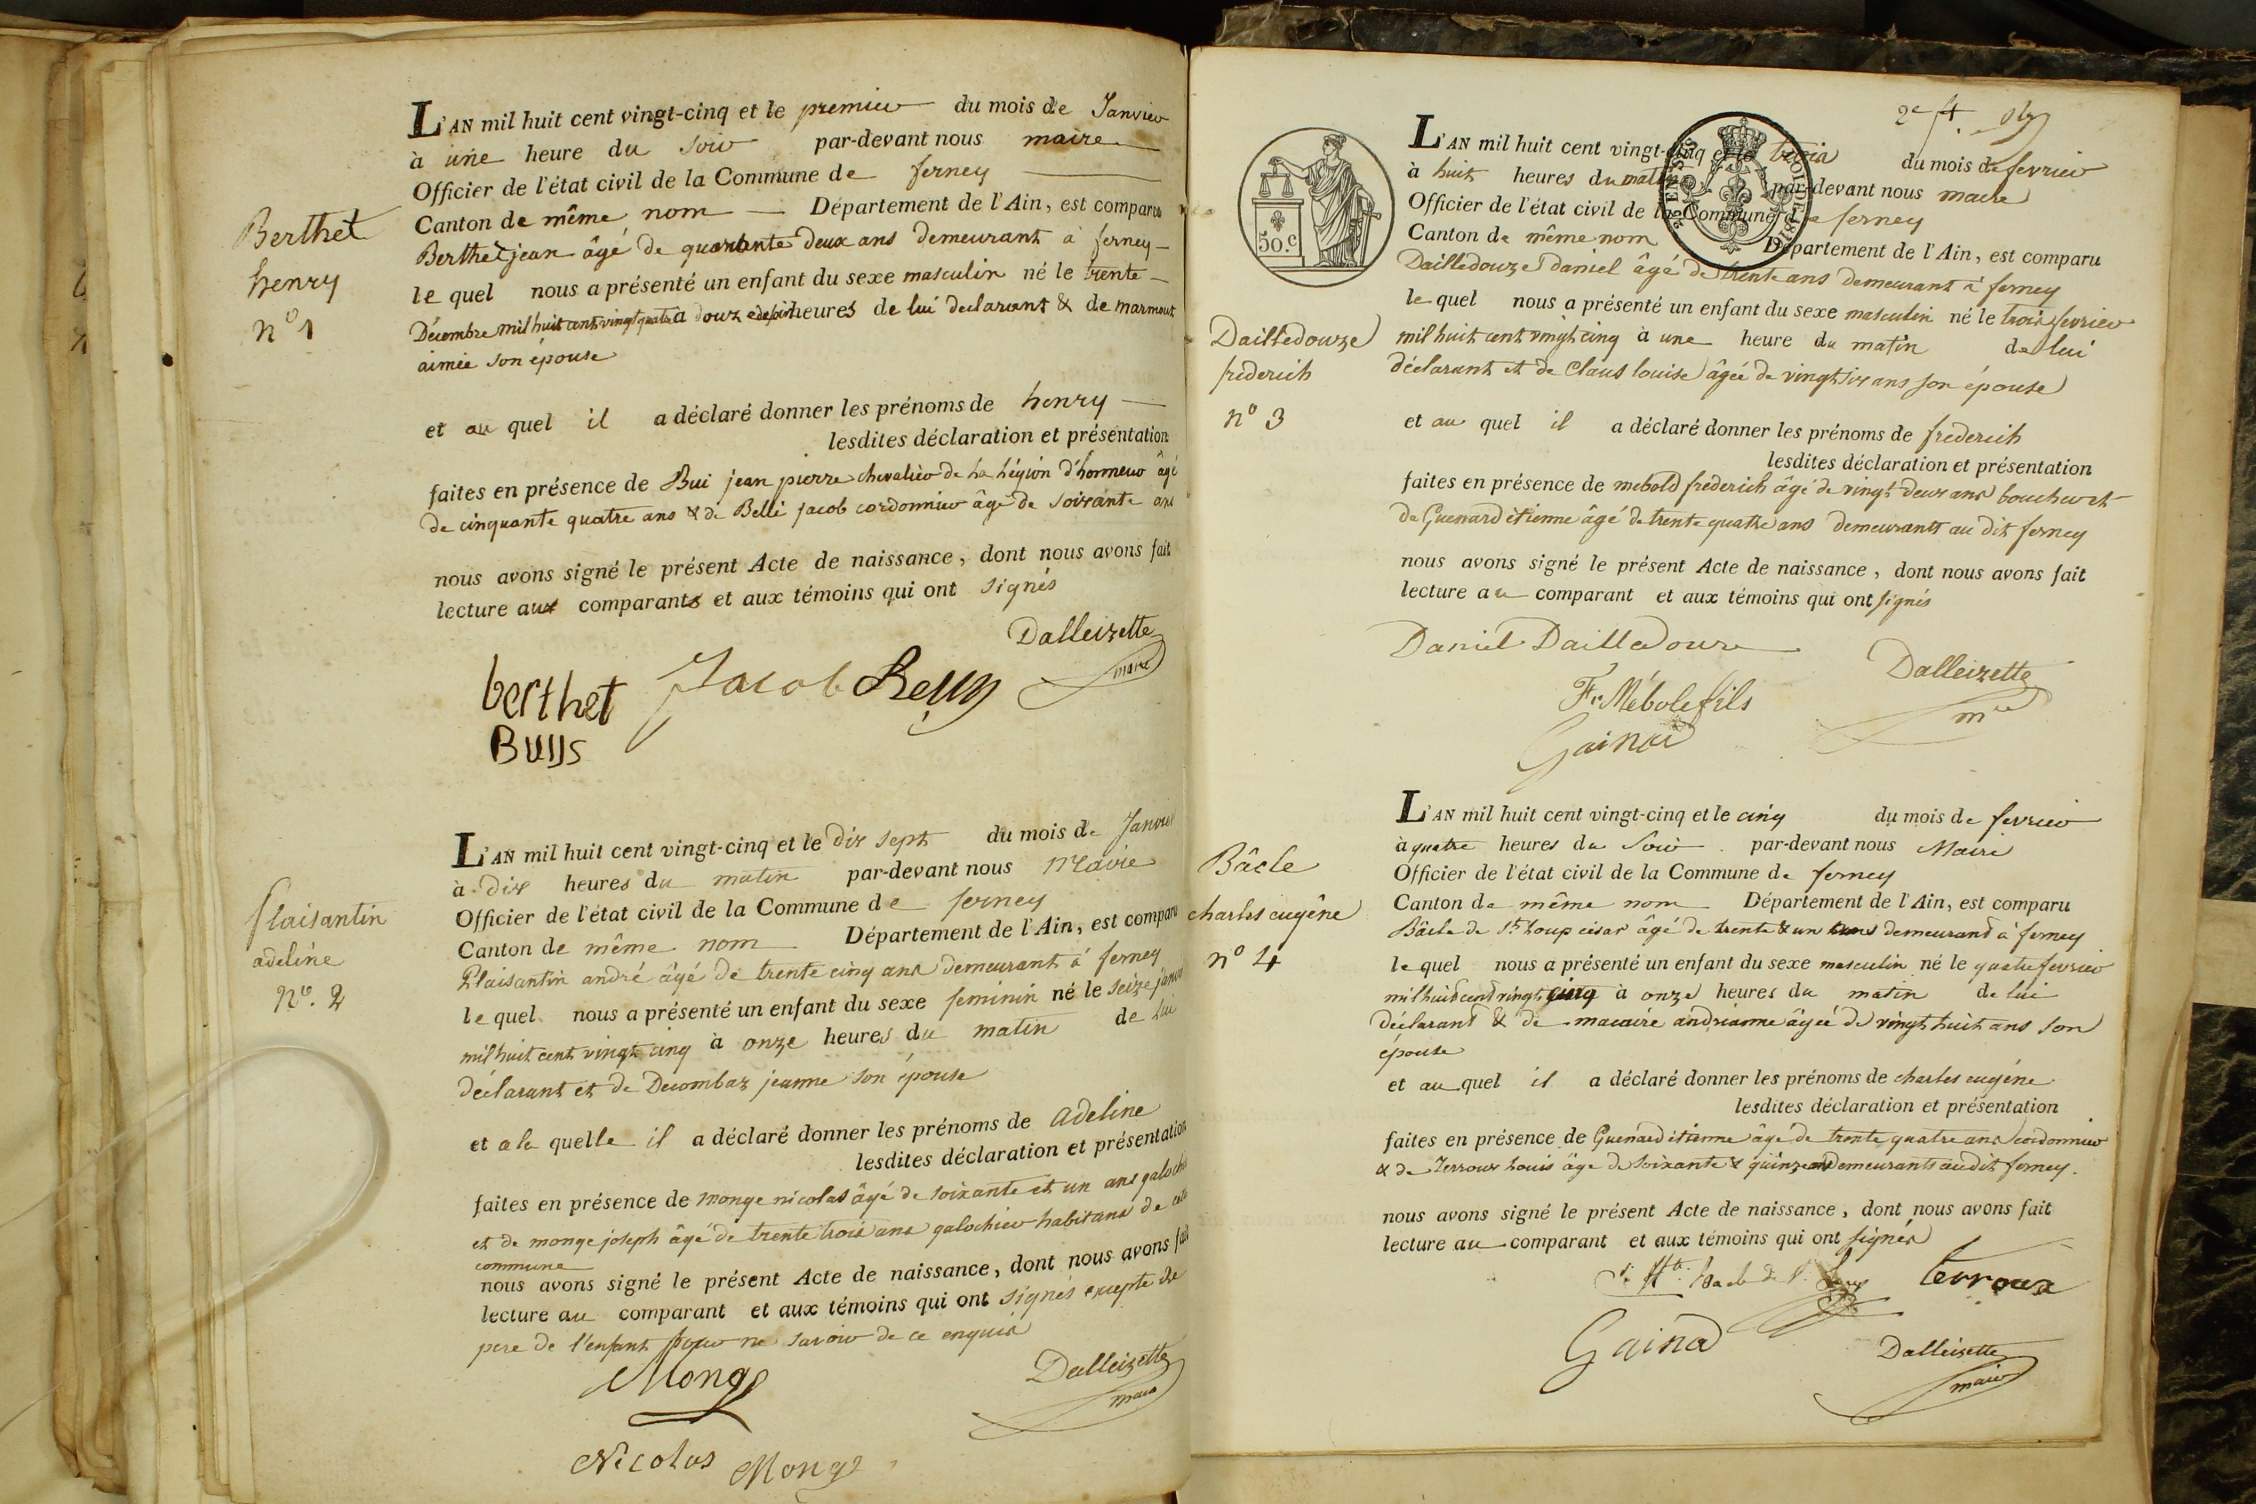 Berthet
henry
nº 1
L'AN mil huit cent vingt-cinq et le premier du mois de Janvier
à une heure du soir par-devant nous maire
Officier de l'état civil de la Commune de ferney
Canton de même nom Département de l'Ain, est comparu
Berthet jean âgé de quarante deux ans demeurant à ferney
le quel nous a présenté un enfant du sexe masculin né le trente
Décembre mil huit cent vingt quatre à douze heures de lui declarant & de marmout
aimée son épouse
et au quel il a déclaré donner les prénoms de henry
lesdites déclaration et présentation
faites en présence de Bui jean pierre chevalier de la légion d'honneur âgé
de cinquante quatre ans & de Belli jacob cordonnier âgé de soixante ans
nous avons signé le présent Acte de naissance, dont nous avons fait
lecture aux comparants et aux témoins qui ont signés
Dalleizette
maire
berthet Jacob
Buijs
Plaisantin
adeline
Nº. 2
L'AN mil huit cent vingt-cinq et le dix sept du mois de Janvier
à dix heures du matin par-devant nous Maire
Officier de l'état civil de la Commune de ferney
Canton de même nom Département de l'Ain, est comparu
Plaisantin andré âgé de trente cinq ans demeurant á ferney
le quel nous a présenté un enfant du sexe feminin né le seize janvier
mil huit cent vingt cinq à onze heures du matin de lui
déclarant et de Decombaz jeanne son épouse
et a la quelle il a déclaré donner les prénoms de adeline
lesdites déclaration et présentation
faites en présence de monge nicolas âgé de soixante et un ans galochier
et de monge joseph âgé de trente trois ans galochier habitans de cette
commune
nous avons signé le présent Acte de naissance, dont nous avons fait
lecture au comparant et aux témoins qui ont signés excepté le
pere de l'enfant pour ne savoir de ce enquis
Monge
Dalleizette
maire
Nicolas Monge
2e
50.c
L'AN mil huit cent vingt-cinq et le trois du mois de fevrier
à huit heures du matin par-devant nous maire
Officier de l'état civil de la Commune de ferney
Canton de même nom Département de l'Ain, est comparu
Dailledouze Daniel âgé de trente ans demeurant à ferney
le quel nous a présenté un enfant du sexe masculin né le trois fevrier
mil huit cent vingt cinq à une heure du matin de lui
déclarant et de Claus louise âgée de vingt six ans son épouse
Dailledouze
frederich
nº 3
et au quel il a déclaré donner les prénoms de frederich
lesdites déclaration et présentation
faites en présence de mebold frederich âgé de vingt deux ans boucher et
de Guenard étienne âgé de trente quatre ans demeurants au dit ferney
nous avons signé le présent Acte de naissance, dont nous avons fait
lecture au comparant et aux témoins qui ont signés
Daniel Dailledouze
Dalleizette
mre
Fr. Mébole fils
Gainar
Bâcle
charles eugêne
nº 4
L'AN mil huit cent vingt-cinq et le cinq du mois de fevrier
à quatre heures du Soir par-devant nous Maire
Officier de l'état civil de la Commune de ferney
Canton de même nom Département de l'Ain, est comparu
Bâcle de St. Loup cesar âgé de trente & un ans demeurant à ferney
le quel nous a présenté un enfant du sexe masculin né le quatre fevrier
mil huit cent vingt cinq à onze heures du matin de lui
déclarant & de macaire andrianne âgée de vingt huit ans son
épouse
et au quel il a déclaré donner les prénoms de charles eugéne
lesdites déclaration et présentation
faites en présence de Guenard étienne âgé de trente quatre ans cordonnier
& de Terroux Louis âgé de soixante & quinze ans demeurants audit ferney.
nous avons signé le présent Acte de naissance, dont nous avons fait
lecture au comparant et aux témoins qui ont signés
terroux
Gainar
Dalleizette
maire